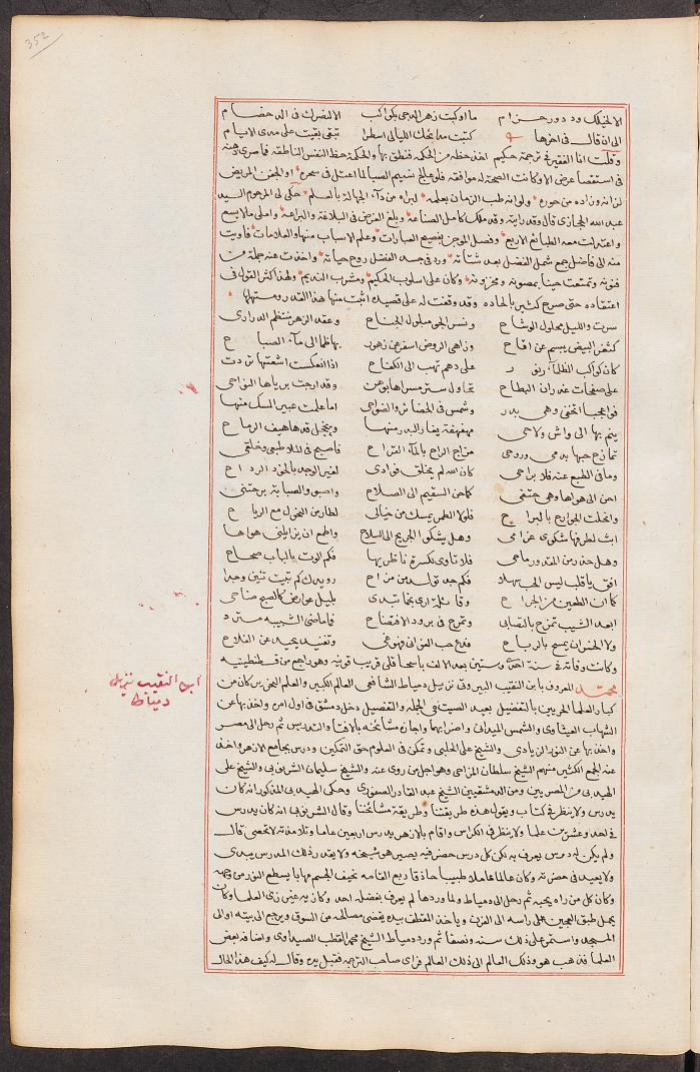 352
الالخيلك ودود ورحزام ما اوكبت زهر الدجى بكواكب الا لنصرك فى الدخضام
الى ان قال فى اخرها كتبت مدايحك الليالى اسطرا تبقى بقيت على مدى الايام
وقلت انا الفقير فى ترجمة حكيم اخذ حظه من الحكمه فنطق بها والحكمة حظ النفس الناطقه فاصرى ذهنه
فى استقصا عرض الا وكانت الصحة له موافقه فلو عالج نسيم الصبا لما اعتل فى سحره او الجفن المريض
لزانه وزاده من حوره ولو انه طب الزمان بعلمه لبراه من دآء الجهالة بالعلم حكى لى المرحوم السيد
عبد الله الحجازى قال وقد رايته وقد ملك كامل الصناعه وبلغ الغرض فى البلاغة والبراعه واملى مالا يسع
واعتدلت معه الطبائع الاربع وفصل الموجز بفصيح العبارات وعلم الاسباب منها والعلامات فاويت
منه الى فاضل جمع شمل الفضل بعد شتاته ورد فى جسد الفضل روح حياته واخذت عنه جملة من
فنونه وتمتعت حينا بمصونه ومخزونه وكان على اسلوب الحكيم ومشرب النديم ولهذا اكثر القول فى
اعتقاده حتى صرح كثير بالحاده وقد وقفت له على قصيدة اثبت منها هذا القدر ومستهلها
سرت والليل محلول الوشاح ونسر الجو مبلول الجناح وعقد الزهر منتظم الدرارى
كثغر البيض يبسم عن اقاح وزاهى الروض اسفر عن زهور بها ظما الى مآء الصباح
كان كواكب الظلمآء على دهم تهب الى الكفاح اذا انعكست اشعتها تردت
على صفحات غدران البطاح تحاول ستر مسراها بوهن وقد ارجت برياها النواحى
فواعجبا اتخفى وهى بدر وشمس فى الحضائر والضواحى اما علمت عبير المسك منها
ينم بها الى واش ولاحى مهفهفة يغار البدر منها ويخجل قدها هيف الرماح
تمازج حبها بدمى وروحى مزاج الراح بالمآء القراح فاصبح فى الملا طبعى وخلقى
وما فى الطبع عنه فلا براحى كان الله لم يخلق فوادى لغير الوجد بالخود الرداح
احن الى هواها وهى حتفى كما حن السقيم الى الصلاح واصبو والصبابة برحتنى
وانحلت الجوارح بالبراح فلولا الطمر يمسك من خيالى لطار من النحول مع الرياح
ابث لطرفها شكوى غرامى وهل يشكو الجريح الى السلاح واطمع ان يزايلنى هواها
وهل حذر من المقدور ماحى فلا تاوى لكسرة ناظريها فكم الوت بالباب صحاح
افق يا قلب ليس الحب سهلا فكم جد تولد من مزاح رويدك كم تبيت تئن وجدا
كاان الطعين من الجراح وقائلة ارى نجما تبدى بليل عوارض كالصبح ضاحى
ابعد الشيب تمزح بالتصابى وتمرح فى برود الافتضاح فما ماضى الشبيبه مسترد
ولا الخسران يسمح بالرباح فدع حب الغوانى فهو غى وتفنيد يحيد عن الفلاح
وكانت وفاته فى سنة احدى وستين بعد الالف باسحاقلى قريب قونيه وهو راجع من قسطنطينيه
محمد المعروف بابن النقيب البيروتى نزيل دمياط الشافعى العالم الكبير والعلم الشهير كان من
كبار العلما المعروفين بالتفضيل بعيد الصيت فى الجملة والتفصيل دخل دمشق فى اول امره واخذ بها عن
الشهاب العيثاوى والشمس الميدانى واضرابهما واجازه مشائخه بالافتا والتدريس ثم رحل الى مصر
واخذ بها عن النور الزيادى والشيخ على الحلبى وتمكن فى العلوم حق التمكين ودرس بجامع الازهر واخذ
عنه الجمع الكثير منهم الشيخ سلطان المزاحى وهو اجل من روى عنه والشيخ سليمان الشرنوبى والشيخ على
الحميدى من المصريين ومن الدمشقيين الشيخ عبد القادر الصفورى وحكى الحميدى المذكور انه كان
يدرس ولا ينظر فى كتاب ويقول هذه طريقتنا وطريقة مشائخنا وقال الشرنوبى انه كان يدرس
فى احد وعشرين علما ولا ينظر فى الكراس واقام بالازهر يدرس اربعين عاما وتلامذته لا تحصى قال
ولم يكن له درس يعرف به لكن كل درس حضر فيه يصير هو شيخه ولا يقدر ذلك المدرس يبدى
ولا يعيد فى حضرته وكان عالما عاملا طبيبا حاذقا ربع القامه نحيف الجسم مهابا يسطع النور من وجهه
وكان كل من راه يحبه ثم رحل الى دمياط ولما وردها لم يعرف بفضله احد وكان يغير زى العلما وكان
يحمل طبق العجين على راسه الى الفرن وياخذ المقطف بيده يقضى مصالحه من السوق ويرجع الى بيته اوالى
المسجد واستمر على ذلك سنة ونصفا ثم ورد دمياط الشيخ محمد القطب الصيداوى واضافه بعض
العلما فذهب هو وذلك العالم الى ذلك العالم فراى صاحب الترجمه فقبل يده وقال له كيف هذا الحال
ابن النقيب نزيل
دمياط